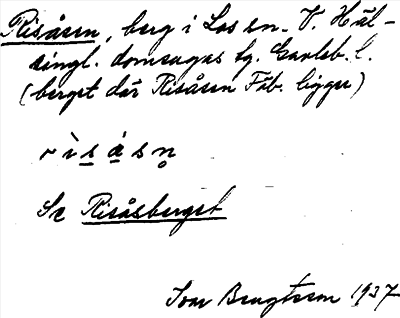 Risåsen, berg i Los sn. V. Häl-
singl. domsagas tg. Gävleb. l.
(berget där Risåsen Fäb. ligger)
r ì s̲ å̲̀ s n̥
Se Risåsberget
Ivar Bengtsson 1937